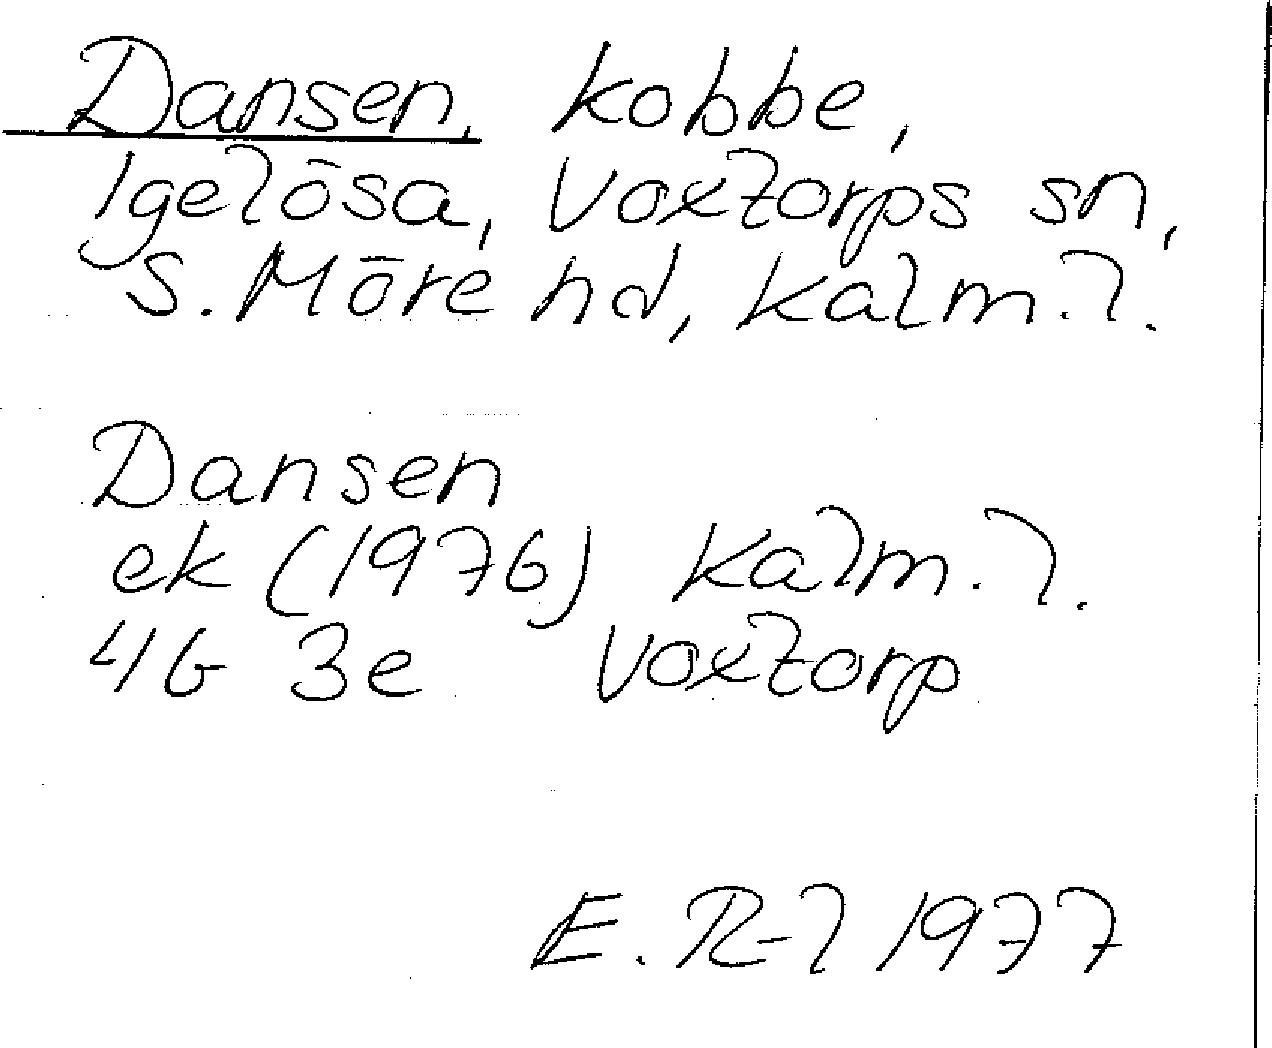 Dansen, kobbe,
Igelösa, Voxtorps sn,
S. Möre hd, Kalm. l.
Dansen
ek (1976) Kalm. l.
4G 3e Voxtorp
E. R-l 1977